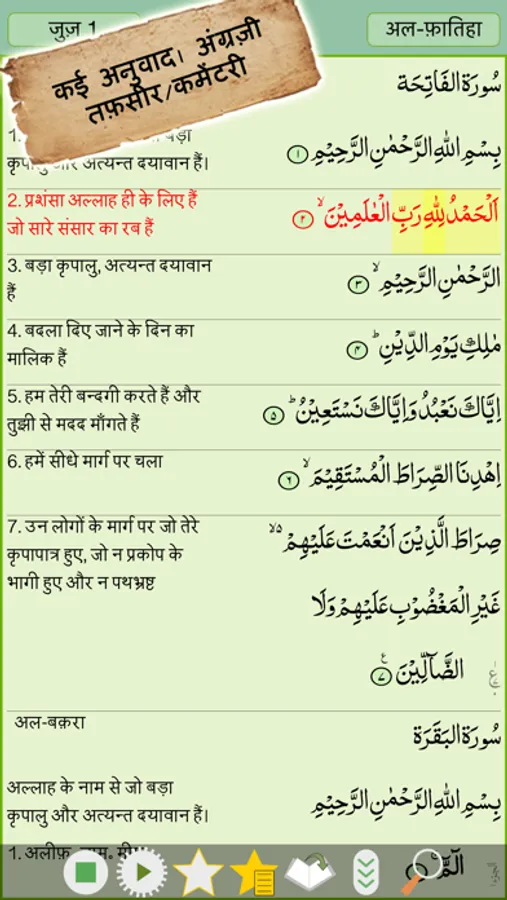 जुज़ 1
अल-फ़ातिहा
कई अनुवाद। अंग्रज़ी
तफ़सीर/कमेंटरी
سُورَةُ الفَاتِحَة
1.
कृपालु और अत्यन्त दयावान हैं।
بِسْمِ اللهِ الرَّحْمٰنِ الرَّحِيْمِ ١
2. प्रशंसा अल्लाह ही के लिए हैं
जो सारे संसार का रब हैं
اَلْحَمْدُ لِلّٰهِ رَبِّ الْعٰلَمِيْنَ ۙ ٢
3. बड़ा कृपालु, अत्यन्त दयावान
हैं
الرَّحْمٰنِ الرَّحِيْمِ ۙ ٣
4. बदला दिए जाने के दिन का
मालिक हैं
مٰلِكِ يَوْمِ الدِّيْنِ ؕ ٤
5. हम तेरी बन्दगी करते हैं और
तुझी से मदद माँगते हैं
اِيَّاكَ نَعْبُدُ وَاِيَّاكَ نَسْتَعِيْنُ ؕ ٥
6. हमें सीधे मार्ग पर चला
اِهْدِنَا الصِّرَاطَ الْمُسْتَقِيْمَ ۙ ٦
7. उन लोगों के मार्ग पर जो तेरे
कृपापात्र हुए, जो न प्रकोप के
भागी हुए और न पथभ्रष्ट
صِرَاطَ الَّذِيْنَ اَنْعَمْتَ عَلَيْهِمْ ۙ۬
غَيْرِ الْمَغْضُوْبِ عَلَيْهِمْ وَلَا
الضَّآلِّيْنَ ٧
अल-बक़रा
سُورَةُ البَقَرَة
अल्लाह के नाम से जो बड़ा
कृपालु और अत्यन्त दयावान हैं।
بِسْمِ اللهِ الرَّحْمٰنِ الرَّحِيْمِ
1. अलीफ़
الٓمّٓ